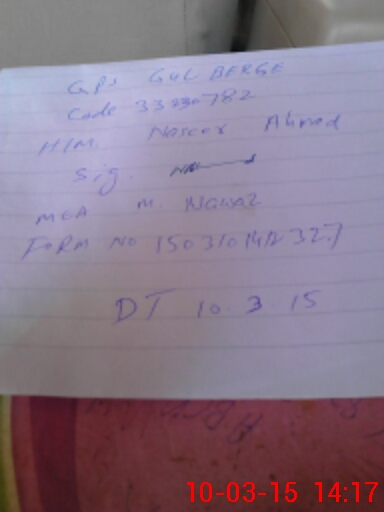 GPS GUL BERGE
Code 33230782
H/M. Naseer Ahmad
Sig.
MEA M. Nawaz
FORM NO 1503101412327
DT 10.3.15
10-03-15 14:17